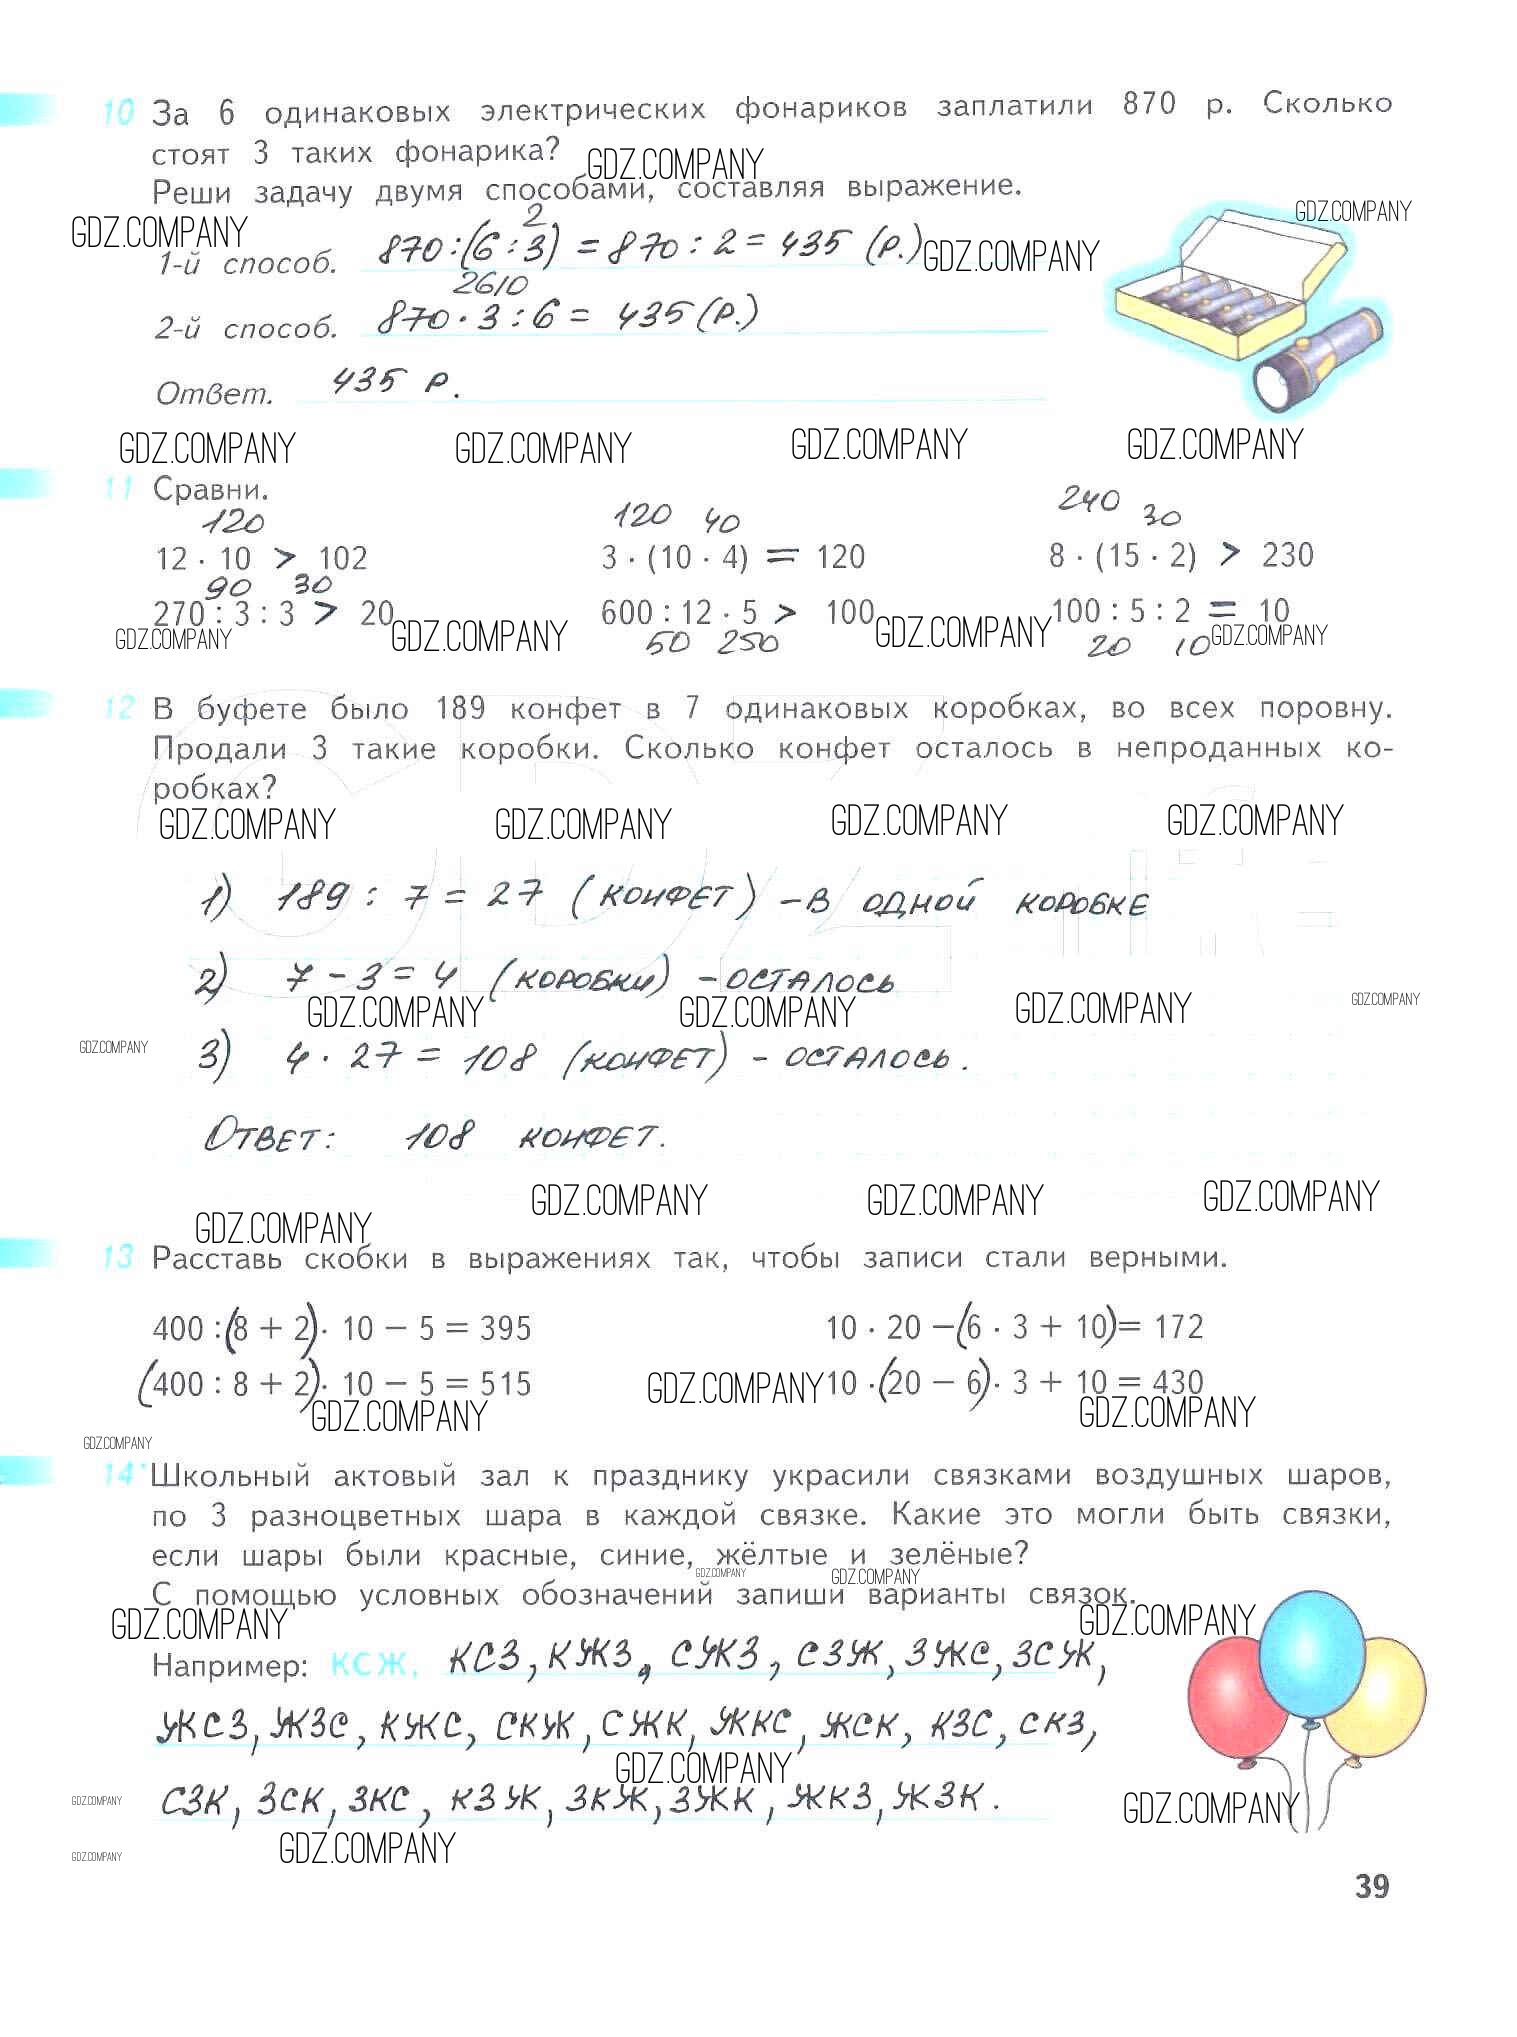 10 За 6 одинаковых электрических фонариков заплатили 870 р. Сколько
стоят 3 таких фонарика?
GDZ.COMPANY
Реши задачу двумя способами, составляя выражение.
GDZ.COMPANY
GDZ.COMPANY
2
1-й способ. 870 : (6 : 3) = 870 : 2 = 435 (р.)
GDZ.COMPANY
2610
2-й способ. 870 · 3 : 6 = 435 (р.)
Ответ. 435 р.
GDZ.COMPANY GDZ.COMPANY GDZ.COMPANY GDZ.COMPANY
11 Сравни.
120 120 40 240 30
12 · 10 > 102 3 · (10 · 4) = 120 8 · (15 · 2) > 230
90 30
270 : 3 : 3 > 20 600 : 12 · 5 > 100 100 : 5 : 2 = 10
GDZ.COMPANY GDZ.COMPANY GDZ.COMPANY GDZ.COMPANY
50 250 20 10
12 В буфете было 189 конфет в 7 одинаковых коробках, во всех поровну.
Продали 3 такие коробки. Сколько конфет осталось в непроданных ко-
робках?
GDZ.COMPANY GDZ.COMPANY GDZ.COMPANY GDZ.COMPANY
1) 189 : 7 = 27 (конфет) – в одной коробке
2) 7 – 3 = 4 (коробки) – осталось
GDZ.COMPANY GDZ.COMPANY GDZ.COMPANY GDZ.COMPANY
GDZ.COMPANY
3) 4 · 27 = 108 (конфет) – осталось.
Ответ: 108 конфет.
GDZ.COMPANY GDZ.COMPANY GDZ.COMPANY GDZ.COMPANY
13 Расставь скобки в выражениях так, чтобы записи стали верными.
400 : (8 + 2) · 10 – 5 = 395 10 · 20 – (6 · 3 + 10) = 172
(400 : 8 + 2) · 10 – 5 = 515 10 · (20 – 6) · 3 + 10 = 430
GDZ.COMPANY
GDZ.COMPANY GDZ.COMPANY
GDZ.COMPANY
14* Школьный актовый зал к празднику украсили связками воздушных шаров,
по 3 разноцветных шара в каждой связке. Какие это могли быть связки,
если шары были красные, синие, жёлтые и зелёные?
GDZ.COMPANY GDZ.COMPANY
С помощью условных обозначений запиши варианты связок.
GDZ.COMPANY GDZ.COMPANY
Например: КСЖ, КСЗ, КЖЗ, СЖЗ, СЗЖ, ЗЖС, ЗСЖ,
ЖСЗ, ЖЗС, КЖС, СКЖ, СЖК, ЖКС, ЖСК, КЗС, СКЗ,
GDZ.COMPANY
СЗК, ЗСК, ЗКС, КЗЖ, ЗКЖ, ЗЖК, ЖКЗ, ЖЗК.
GDZ.COMPANY GDZ.COMPANY
GDZ.COMPANY GDZ.COMPANY
39